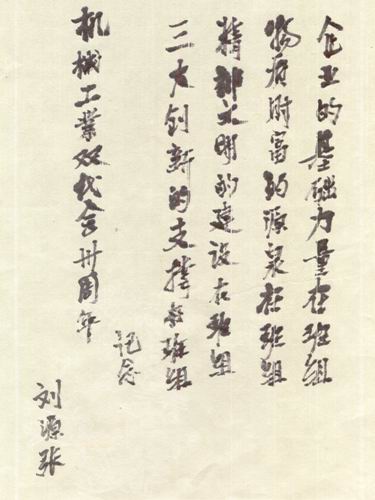 企业的基础力量在班组
物质财富的源泉在班组
精神文明的建设在班组
三大创新的支撑在班组
机械工业双代会卅周年
记念
刘源张